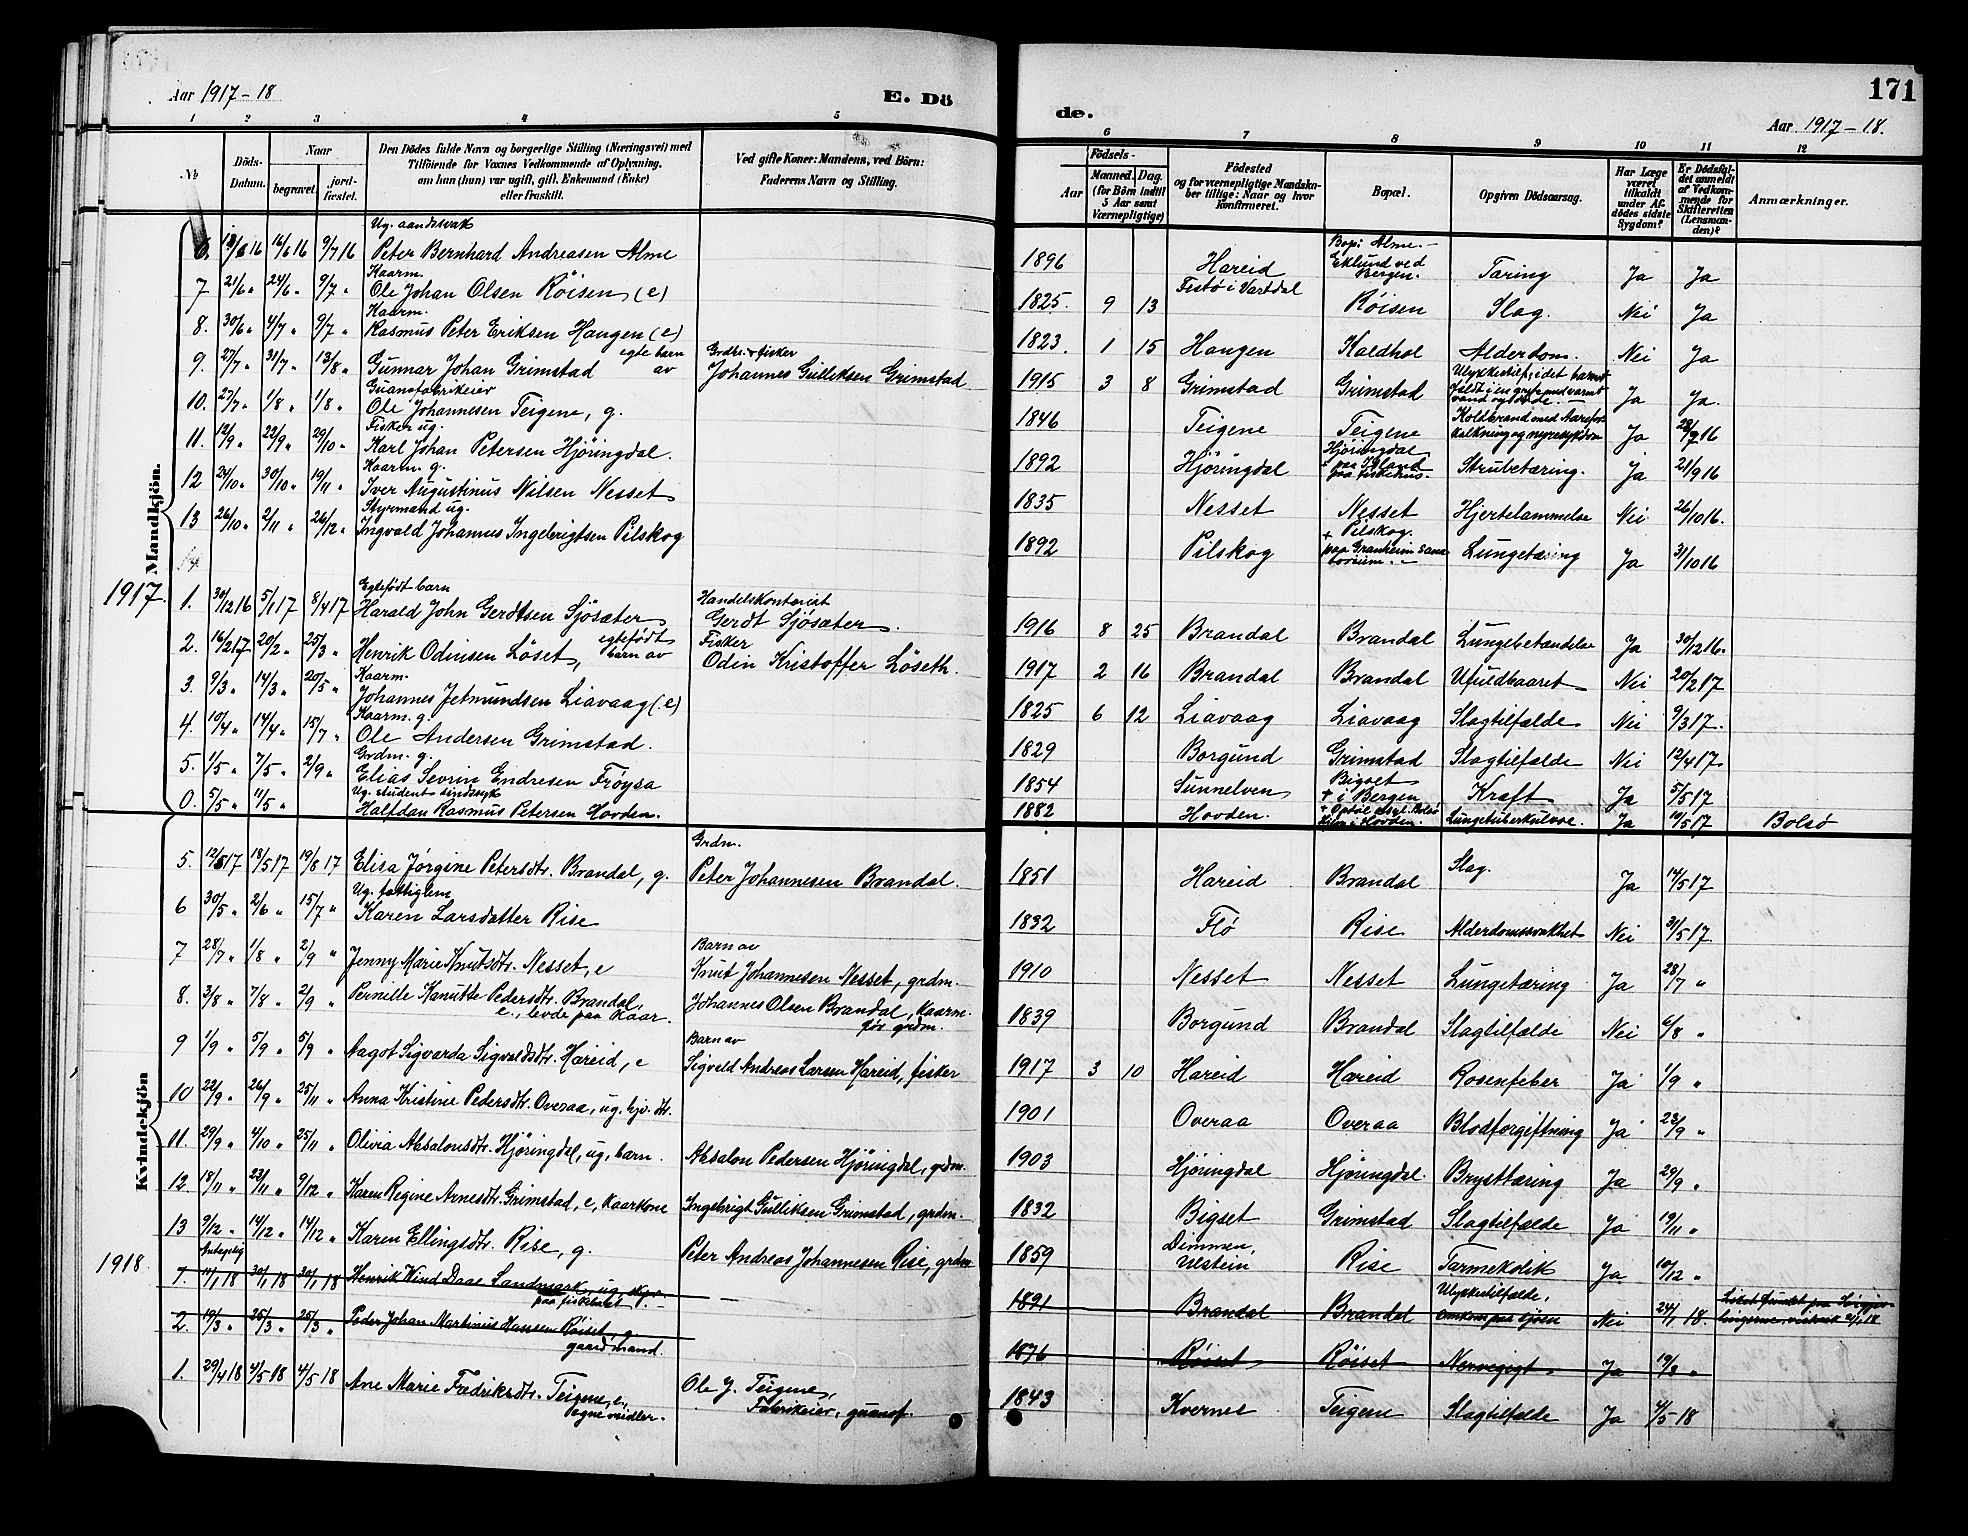 Aar 1917-18
E. Dö
de.
171
Aar 1917-18.
1 2 3 4 5 6 7 8 9 10 11 12
No
Döds-Datum.
Naar
begravet.
jordfæstet.
Den Dödes fulde Navn og borgerlige Stilling (Næringsvei) med
Tilföiende for Voxnes Vedkommende af Oplysning,
om han (hun) var ugift, gift, Enkemand (Enke)
eller fraskilt.
Ved gifte Koner: Mandens, ved Börn:
Faderens Navn og Stilling.
Födsels-
Aar
Maaned. Dag.
(for Börn indtil
5 Aar samt
Værnepligtige)
Födested
og for værnepligtige Mandskaber tillige: Naar og hvor
konfirmeret.
Bopæl.
Opgiven Dödsaarsag.
Har Læge
været
tilkaldt
under Afdödes sidste
Sygdom?
Er Dödsfaldet anmeldt
af Vedkommende for
Skifteretten
(Lensmanden)?
Anmærkninger.
Mandkjön.
Ug. aandssvak
16/6 16 9/7 16 Peter Bernhard Andreasen Alme 1896 Hareid Bopl Alme. - Eklund ved Bergen. Tæring Ja Ja
Kaarm.
7 21/6 " 24/6 " 9/7 " Ole Johan Olsen Röisen (e) 1825. 9 13 Fistö i Vartdal Röisen Slag. Nei Ja
Kaarm.
8. 30/6 " 4/7 " 9/7 " Rasmus Peter Eriksen Haugen (e) 1823. 1 15 Haugen Kaldhol Alderdom. Nei Ja
9. 27/7 " 31/7 " 13/8 " Gunnar Johan Grimstad egte barn av Grdbr. + fisker Johannes Gulliksen Grimstad 1915 3 8 Grimstad Grimstad Ulykkestilf., idet barnet Ja Ja.
Guanofabrikeier
10. 27/7 " 1/8 " 1/8 " Ole Johannesen Teigene, g. 1846 Teigene Teigene Koldbrand med Aareforkalkning og nyresykdom Ja 28/7 16
Fisker ug.
11. 12/9 " 22/9 " 29/10 " Karl Johan Petersen Hjöringdal. 1892 Hjöringdal Hjöringdal + paa Island paa fiskehus. Strubetæring. Ja 21/9 16
Kaarm. g.
12 24/10 " 30/10 " 19/11 " Iver Augustinus Nilsen Nesset 1835 Nesset Nesset Hjertelammelse Nei 26/10 16.
Styrmand ug.
13 26/10 " 2/11 " 26/12 " Ingvald Johannes Ingebrigtsen Pilskog 1892 Pilskog Pilskog. + paa Granheim Sanatorium. Lungetæring Ja 31/10 16
14
1917.
Egtefödt barn
1. 30/12 16 5/1 17 8/4 17 Harald John Gerdtsen Sjösæter Handelskontorist Gerdt Sjösæter. 1916 8 25 Brandal Brandal Lungebetændelse Ja 30/12 16.
2. 16/2 17 20/2 " 25/3 " Henrik Odinsen Löset, egtefödt barn av Fisker Odin Kristoffer Löseth. 1917 2 16 Brandal Brandal Ufuldbaaret Nei 20/2 17
Kaarm.
3. 9/3 " 14/3 " 20/5 " Johannes Jetmundsen Liavaag (e) 1825 6 12 Liavaag Liavaag Slagtilfælde Nei 9/3 17.
Kaarm. g.
4. 10/4 " 14/4 " 15/7 " Ole Andersen Grimstad. 1829 Borgund Grimstad Slagtilfælde Nei 12/4 17.
Grdm. g.
5. 1/5 " 7/5 " 2/9 " Elias Sevrin Endresen Fröysa 1854 Sunnelven Bigset + i Bergen Kræft Ja 5/5 17
Ug. student sindssyk
0. 5/5 " 11/5 " Halfdan Rasmus Petersen Hovden. 1882 Hovden. + Opdöl Asyl. Bolsö Hjm. i Hovden. Lungetuberkulose. Ja 10/5 17 Bolsö
Kvindekjön
5. 12/5 17 18/5 17 19/8 17 Elisa Jörgine Petersdtr. Brandal, g. Grdm. Peter Johannesen Brandal. 1851 Hareid Brandal Slag. Ja 14/5 17
Ug. fattiglem
6 30/5 " 2/6 " 15/7 " Karen Larsdatter Rise 1832 Flö Rise Alderdomssvakhet Nei 31/5 17.
7 28/7 " 1/8 " 2/9 " Jenny Marie Knutsdtr. Nesset, e Barn av Knut Johannesen Nesset, grdm. 1910 Nesset Nesset Lungetæring Ja 28/7 "
8. 3/8 " 7/8 " 2/9 " Pernille Kanutte Pedersdtr. Brandal, e., levde paa Kaar. Johannes Olsen Brandal, kaarm. för grdm. 1839 Borgund Brandal Slagtilfælde Nei 6/8 "
9 1/9 " 5/9 " 5/9 " Aagot Sigvarda Sigvaldsdtr. Hareid, e Barn av Sigvald Andreas Larsen Hareid, fisker 1917 3 10 Hareid Hareid Rosenfeber Ja 1/9 "
10 22/9 " 26/9 " 25/11 " Anna Kristine Pedersdtr. Overaa, ug. hjv. dtr. 1901 Overaa Overaa Blodforgiftning Ja 23/9 "
11. 29/9 " 4/10 " 25/11 " Olivia Absalonsdtr. Hjöringdal, ug, barn. Absalon Pedersen Hjöringdal, grdm. 1903 Hjöringdal Hjöringdal. Brysttæring Ja 29/9 "
12. 18/11 " 23/11 " 9/12 " Karen Regine Arnesdtr. Grimstad, e, kaarkone Ingebrigt Gulliksen Grimstad, grdm. 1832 Bigset Grimstad Slagtilfælde Ja 19/11 "
13 9/12 " 14/12 " 14/12 " Karen Ellingsdtr. Rise, g. Peter Andreas Johannesen Rise, grdm 1859 Dimmen, Ulstein Rise Tarmekolik Ja 10/12 "
1918.
1. Antagelig 11/1 18 30/1 18 30/1 18 Henrik Wind Daae Landmark, ug, paa fiskebaat. 1891 Brandal Brandal Ulykkestilfælde, omkom paa sjöen Nei 24/1 18.
2. 19/3 " 25/3 " 25/3 " Peder Johan Martinius Hansen Röiset, g. gaardmand. 1876 Röiset Röiset Nervegigt Ja 19/3 "
1. 29/4 18 4/5 18 4/5 18 Ane Marie Fredriksdtr. Teigene, e, egne midler. Ole J. Teigene, Fabrikeier, guanof. 1843 Kvernes Teigene Slagtilfælde Ja 4/5 - 18